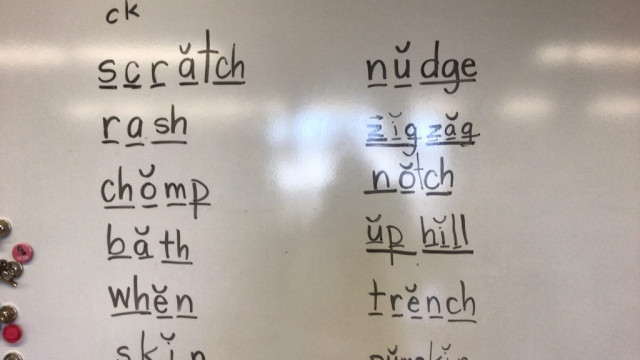 ck
scrătch
rash
chŏmp
băth
whĕn
skĭn
nŭdge
zĭgzăg
nŏtch
ŭp hĭll
trĕnch